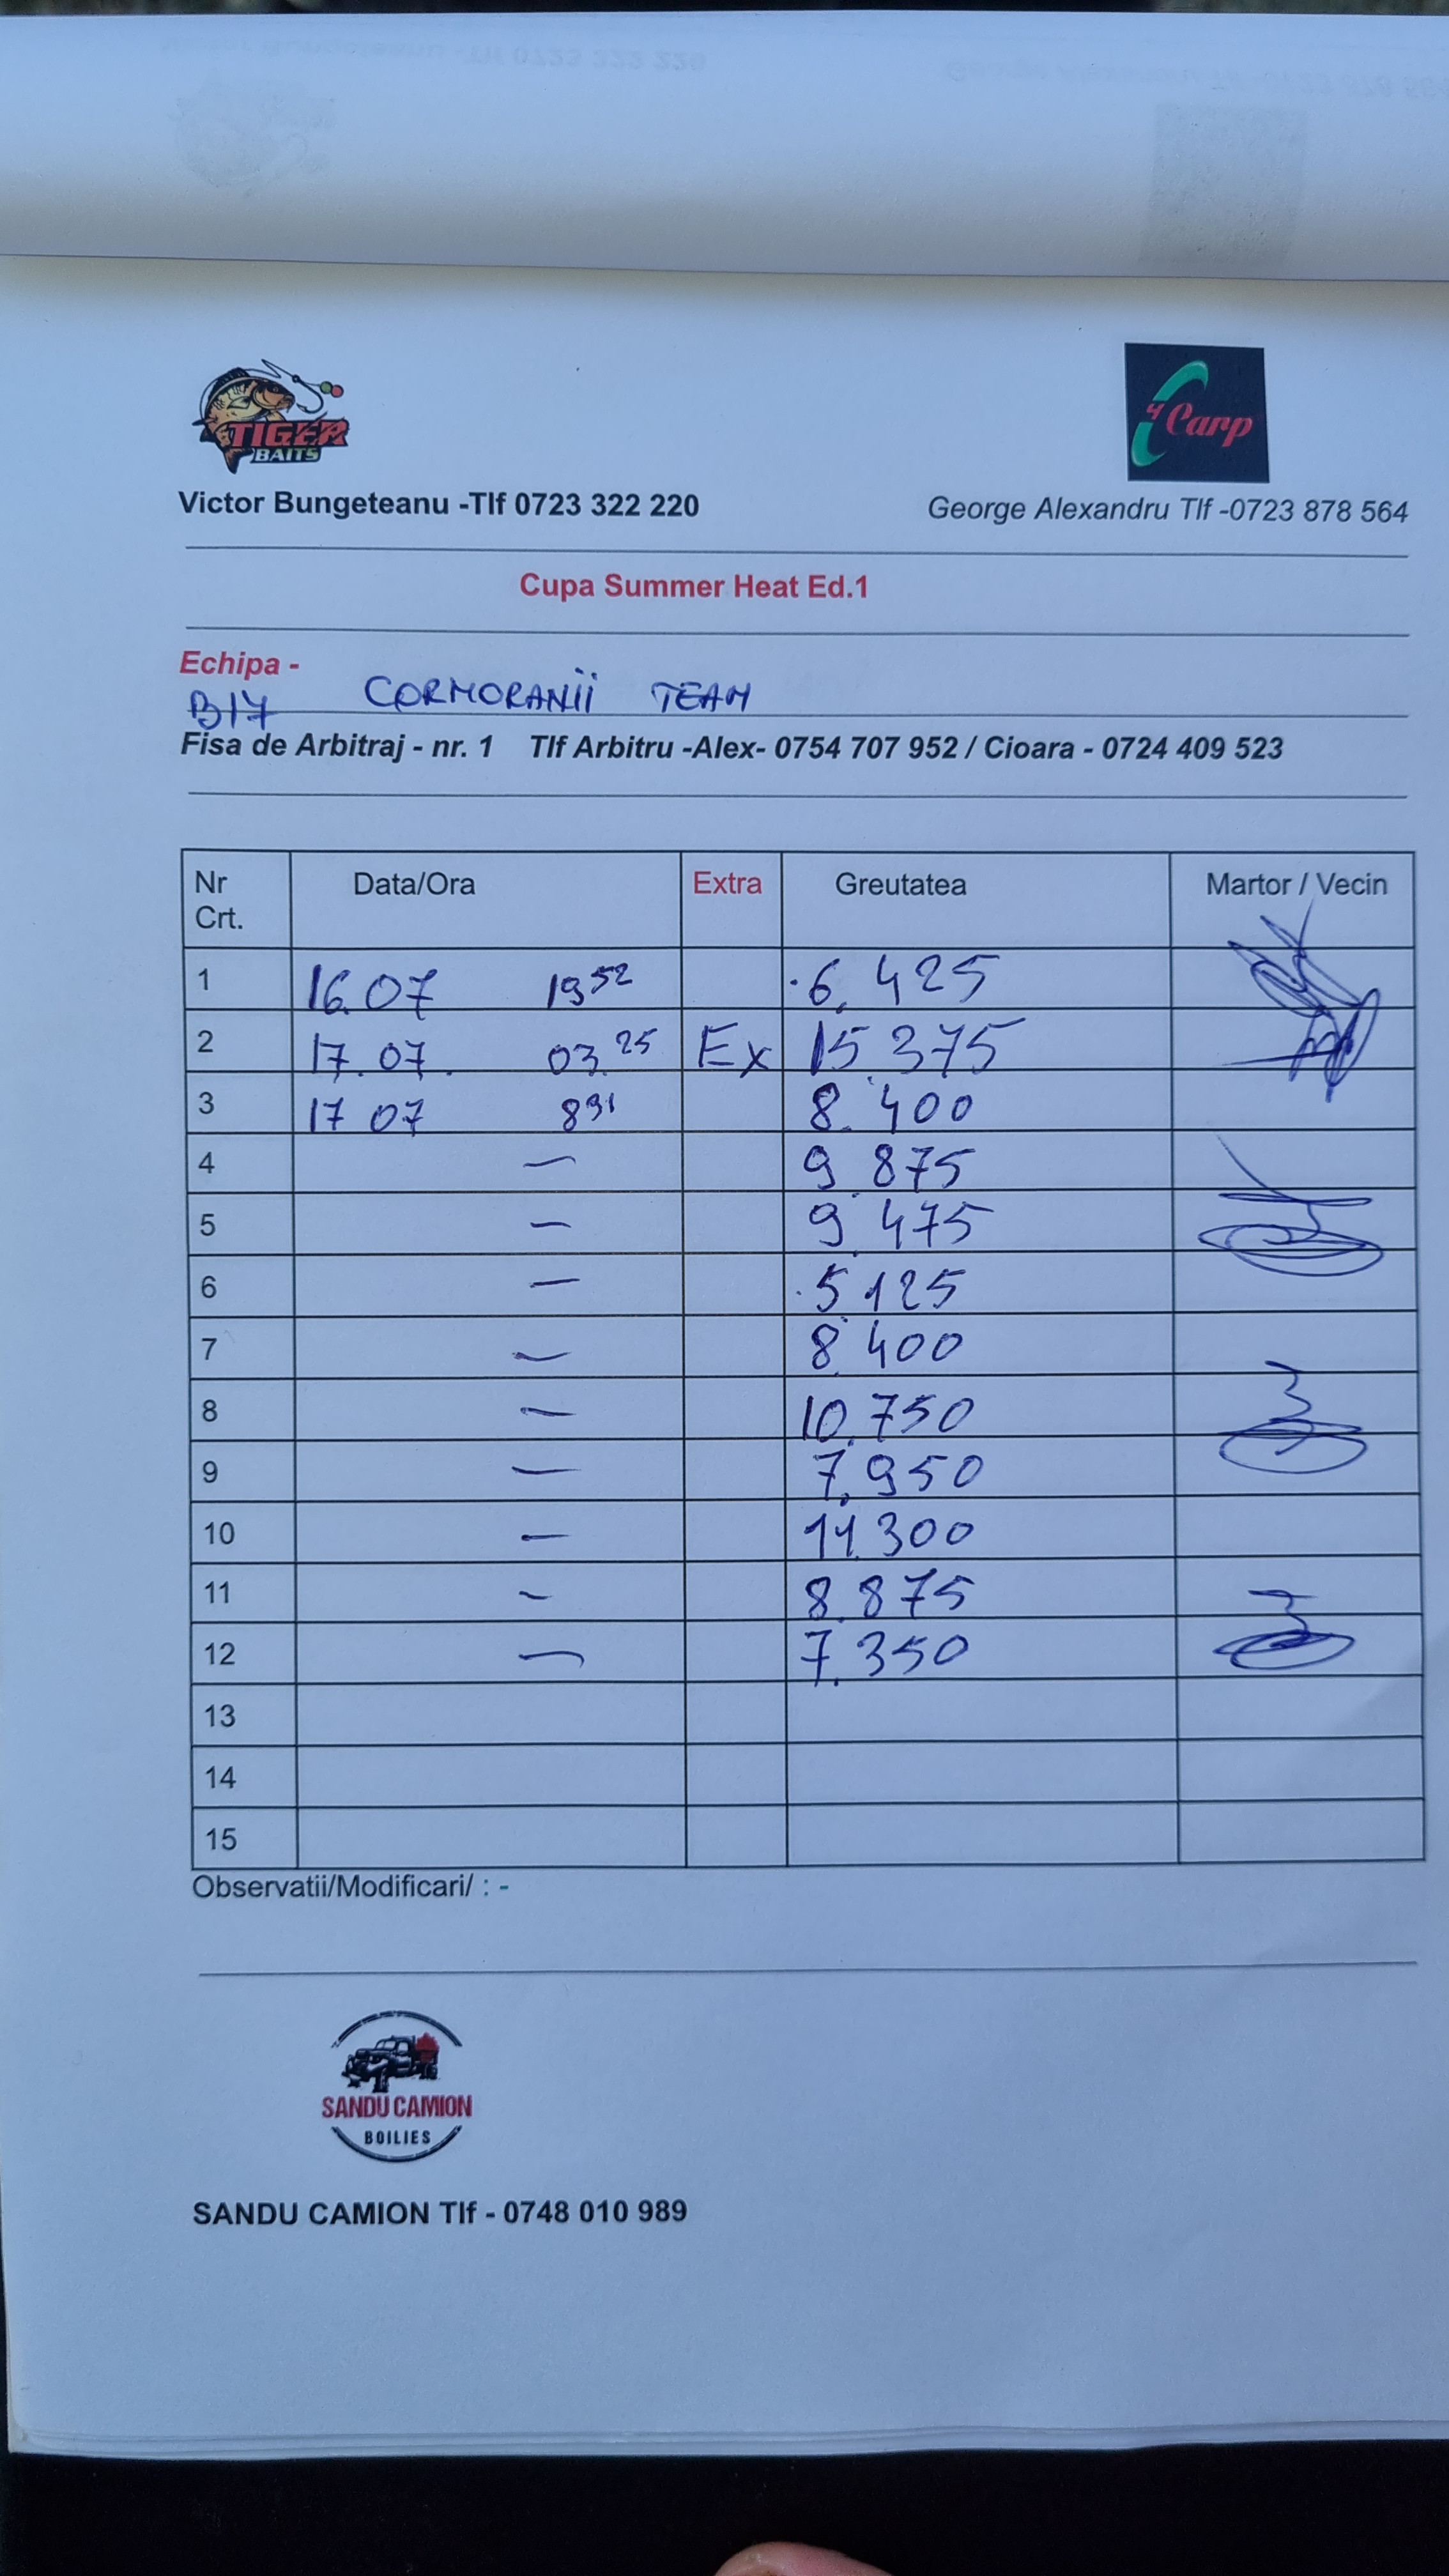 TIGER
BAITS
4 Carp
Victor Bungeteanu -Tlf 0723 322 220
George Alexandru Tlf -0723 878 564
Cupa Summer Heat Ed.1
Echipa -
B17 CORMORANII TEAM
Fisa de Arbitraj - nr. 1 Tlf Arbitru -Alex- 0754 707 952 / Cioara - 0724 409 523
Nr Crt. Data/Ora Extra Greutatea Martor / Vecin
1 16.07 19 52 6.425
2 17.07. 03.25 Ex 15.375
3 17 07 8 31 8.400
4 — 9.875
5 — 9.475
6 — 5 125
7 — 8.400
8 — 10.750
9 — 7.950
10 — 11.300
11 — 8.875
12 — 7.350
13
14
15
Observatii/Modificari/ : -
SANDU CAMION
BOILIES
SANDU CAMION Tlf - 0748 010 989